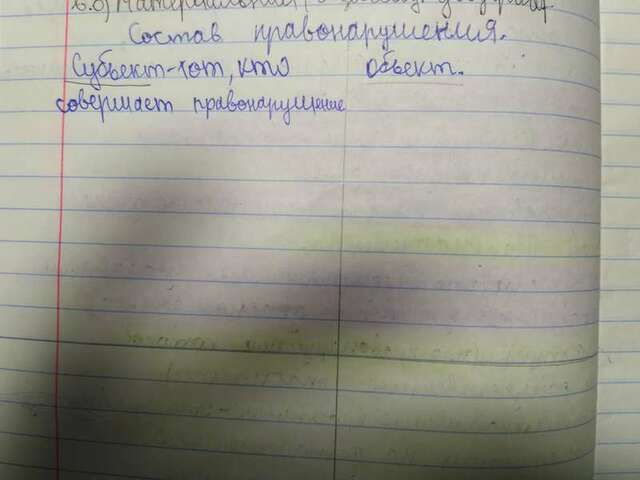 6.б) Материальная
Состав правонарушения.
Субъект-тот, кто объект.
совершает правонарушение